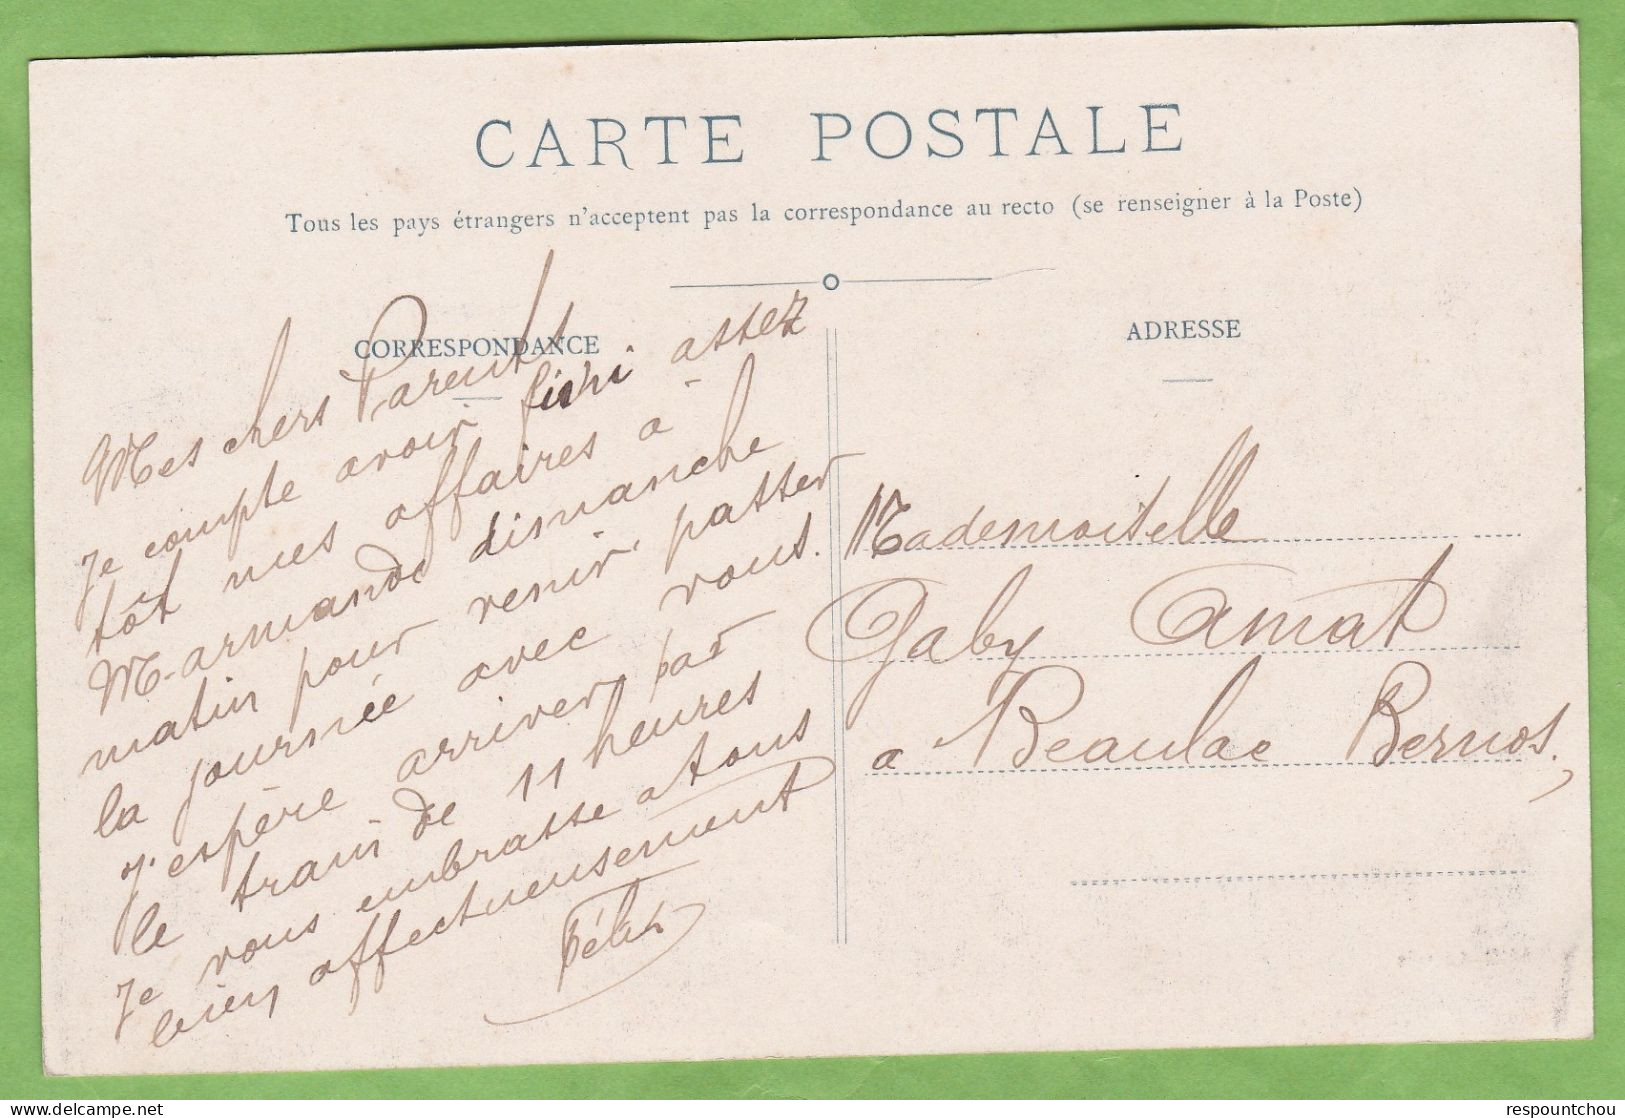 CARTE POSTALE
Tous les pays étrangers n'acceptent pas la correspondance au recto (se renseigner à la Poste)
CORRESPONDANCE
Mes chers Parents
Je compte avoir fini assez
tôt mes affaires à
M-armande dimanche
matin pour venir passer
la journée avec vous.
J'espère arriver par
le train de 11 heures
Je vous embrasse tous
bien affectueusement
Félix
ADRESSE
Mademoiselle
Gaby Amat
a Beaulac Bernos.
delcampe.net
respountchou